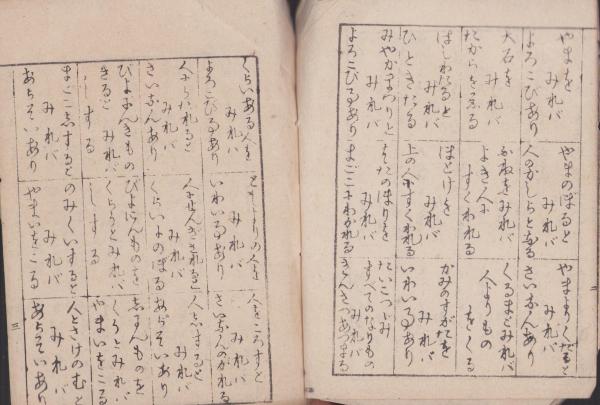 やまを
みれバ
よろこびあり
大石を
みれバ
たからをゑる
はしわたると
みれバ
ひときたる
みやかまつりと
みれバ
よろこびあり
やまのぼると
みれバ
人のかしらとなる
かねをみれバ
よき人に
すくわれる
ほとけを
みれバ
上の人にすくわれる
みれバ
まごこにわかれる
やまよりくだると
みれバ
さいなんあり
くるまどみれバ
人よりもの
をくる
かみのすがたを
みれバ
いわいあり
たいこつゞみ
すべてのなりもの
きんきつあつまる
二
くらいある人を
みれバ
よろこびあり
人にうたれると
みれバ
さいなんあり
びよにんきもの
きるとみれバ
しする
まごこしすると
みれバ
あらそいあり
としよりの人を
みれバ
いわいあり
みれバ
くらいよのぼる
びよにんものを
みれバ
しする
のみくいすると
みれバ
やまいをこる
人をころすと
みれバ
さいなんのがれる
人しすると
みれバ
あらそいあり
しすにんものを
くうとみれバ
やまいをこる
人とさけのむと
みれバ
あらそいあり
三